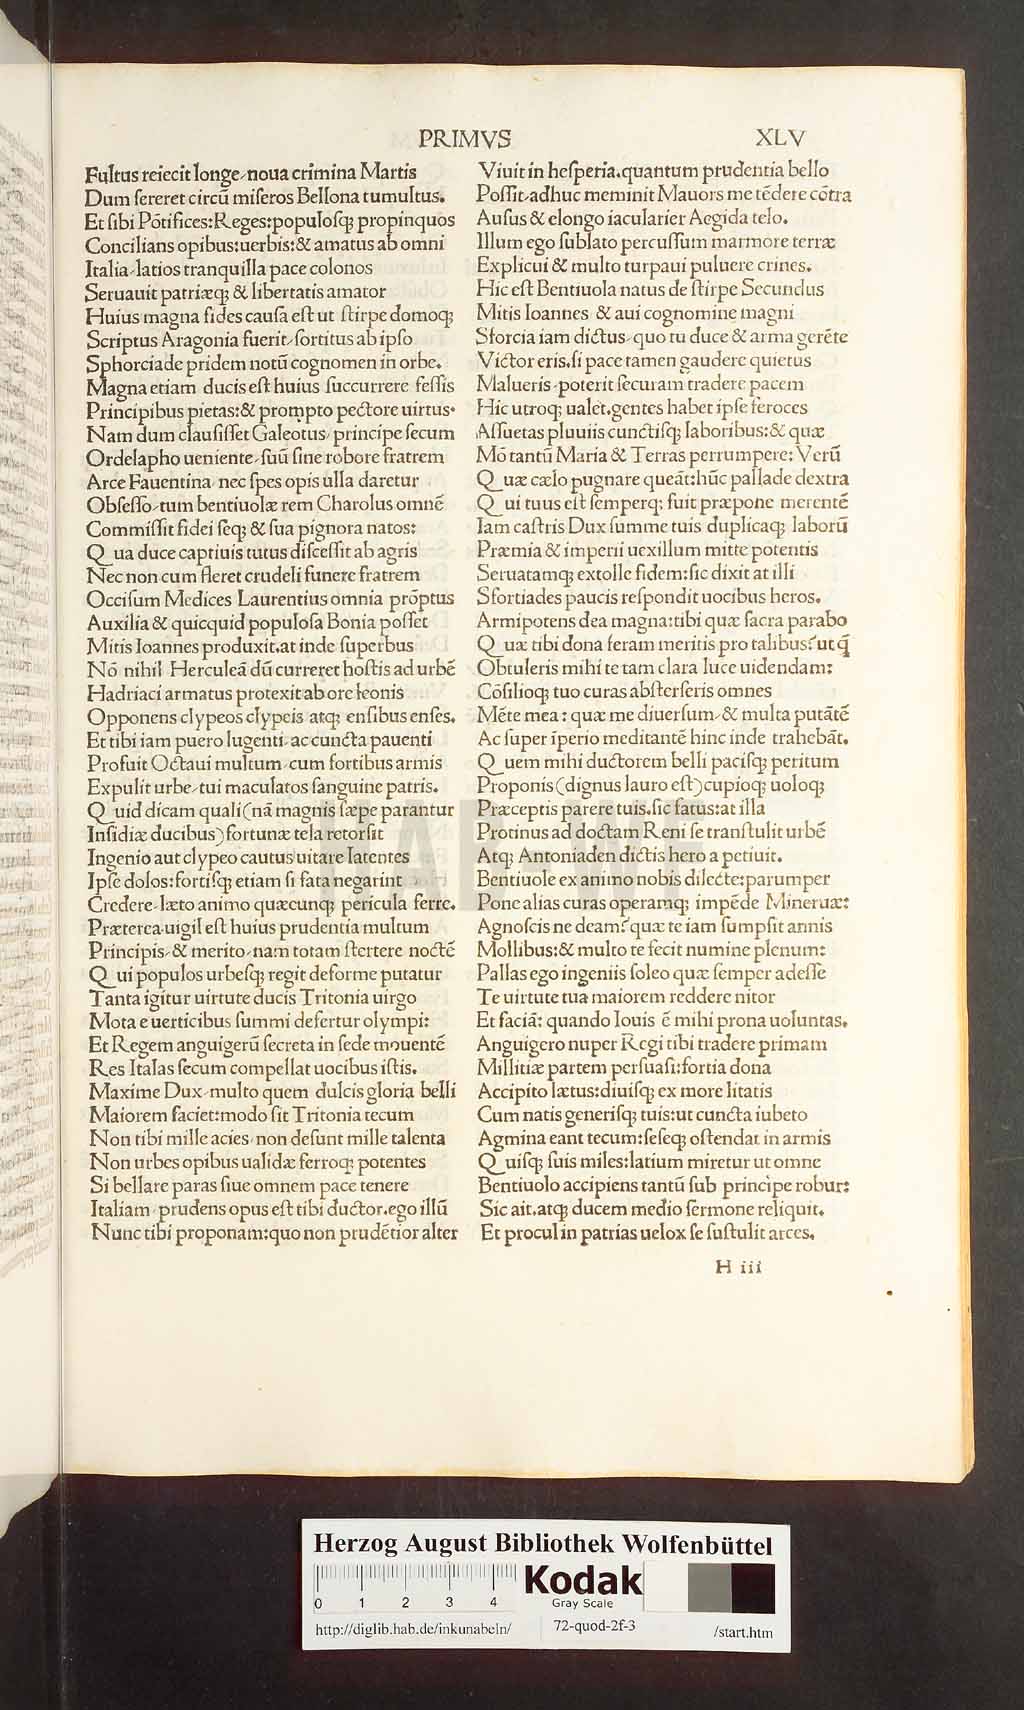 PRIMVS
XLV
Fultus reiecit longe, noua crimina Martis
Dum ſereret circũ miſeros Bellona tumultus.
Et ſibi Põtifices:Reges:populoſq; propinquos
Concilians opibus:uerbis:& amatus ab omni
Italia, latios tranquilla pace colonos
Seruauit patriæq; & libertatis amator
Huius magna fides cauſa eſt ut ſtirpe domoq;
Scriptus Aragonia fuerit, ſortitus ab ipſo
Sphorciade pridem notũ cognomen in orbe.
Magna etiam ducis eſt huius ſuccurrere feſſis
Principibus pietas:& prompto pectore uirtus.
Nam dum clauſiſſet Galeotus, principe ſecum
Ordelapho ueniente, ſuũ ſine robore fratrem
Arce Fauentina, nec ſpes opis ulla daretur
Obſeſſo, tum bentiuolæ rem Charolus omnẽ
Commiſſit fidei ſeq; & ſua pignora natos:
Qua duce captiuis tutus diſceſſit ab agris
Nec non cum fleret crudeli funere fratrem
Occiſum Medices Laurentius omnia prõptus
Auxilia & quicquid populoſa Bonia poſſet
Mitis Ioannes produxit.at inde ſuperbus
Nõ nihil Herculeã dũ curreret hoſtis ad urbẽ
Hadriaci armatus protexit ab ore leonis
Opponens clypeos clypeis atq; enſibus enſes.
Et tibi iam puero lugenti, ac cuncta pauenti
Profuit Octaui multum, cum fortibus armis
Expulit urbe, tui maculatos ſanguine patris.
Quid dicam quali(nã magnis ſæpe parantur
Inſidiæ ducibus)fortunæ tela retorſit
Ingenio aut clypeo cautus uitare latentes
Ipſe dolos:fortiſq; etiam ſi fata negarint
Credere, læto animo quæcunq; pericula ferre.
Præterea uigil eſt huius prudentia multum
Principis, & merito, nam totam ſtertere noctẽ
Qui populos urbeſq; regit deforme putatur
Tanta igitur uirtute ducis Tritonia uirgo
Mota e uerticibus ſummi defertur olympi:
Et Regem anguigerũ ſecreta in ſede mouentẽ
Res Italas ſecum compellat uocibus iſtis.
Maxime Dux, multo quem dulcis gloria belli
Maiorem faciet:modo ſit Tritonia tecum
Non tibi mille acies, non deſunt mille talenta
Non urbes opibus ualidæ ferroq; potentes
Si bellare paras ſiue omnem pace tenere
Italiam, prudens opus eſt tibi ductor.ego illũ
Nunc tibi proponam:quo non prudẽtior alter
Viuit in heſperia.quantum prudentia bello
Poſſit, adhuc meminit Mauors me tẽdere cõtra
Auſus & elongo iacularier Aegida telo.
Illum ego ſublato percuſſum marmore terræ
Explicui & multo turpaui puluere crines.
Hic eſt Bentiuola natus de ſtirpe Secundus
Mitis Ioannes & aui cognomine magni
Sforcia iam dictus, quo tu duce & arma gerẽte
Victor eris.ſi pace tamen gaudere quietus
Malueris, poterit ſecuram tradere pacem
Hic utroq; ualet.gentes habet ipſe feroces
Aſſuetas pluuiis cunctiſq; laboribus:& quæ
Mõ tantũ Maria & Terras perrumpere: Verũ
Quæ cælo pugnare queãt:hũc pallade dextra
Qui tuus eſt ſemperq; fuit præpone merentẽ
Iam caſtris Dux ſumme tuis duplicaq; laborũ
Præmia & imperii uexillum mitte potentis
Seruatamq; extolle fidem:ſic dixit at illi
Sfortiades paucis reſpondit uocibus heros.
Armipotens dea magna:tibi quæ ſacra parabo
Quæ tibi dona feram meritis pro talibus? ut q̃
Obtuleris mihi te tam clara luce uidendam:
Cõſilioq; tuo curas abſterſeris omnes
Mẽte mea: quæ me diuerſum, & multa putãtẽ
Ac ſuper ĩperio meditantẽ hinc inde trahebãt.
Quem mihi ductorem belli paciſq; peritum
Proponis(dignus lauro eſt)cupioq; uoloq;
Præceptis parere tuis.ſic fatus:at illa
Protinus ad doctam Reni ſe tranſtulit urbẽ
Atq; Antoniaden dictis hero a petiuit.
Bentiuole ex animo nobis dilecte:parumper
Pone alias curas operamq; impẽde Mineruæ:
Agnoſcis ne deam? quæ te iam ſumpſit annis
Mollibus:& multo te fecit numine plenum:
Pallas ego ingeniis ſoleo quæ ſemper adeſſe
Te uirtute tua maiorem reddere nitor
Et faciã: quando Iouis ẽ mihi prona uoluntas.
Anguigero nuper Regi tibi tradere primam
Millitiæ partem perſuaſi:fortia dona
Accipito lætus:diuiſq; ex more litatis
Cum natis generiſq; tuis:ut cuncta iubeto
Agmina eant tecum:ſeſeq; oſtendat in armis
Quiſq; ſuis miles:latium miretur ut omne
Bentiuolo accipiens tantũ ſub principe robur:
Sic ait.atq; ducem medio ſermone reliquit.
Et procul in patrias uelox ſe ſuſtulit arces.
H iii
HAB-WF
Herzog August Bibliothek Wolfenbüttel
0 1 2 3 4
Kodak
Gray Scale
http://diglib.hab.de/inkunabeln/
72-quod-2f-3
/start.htm